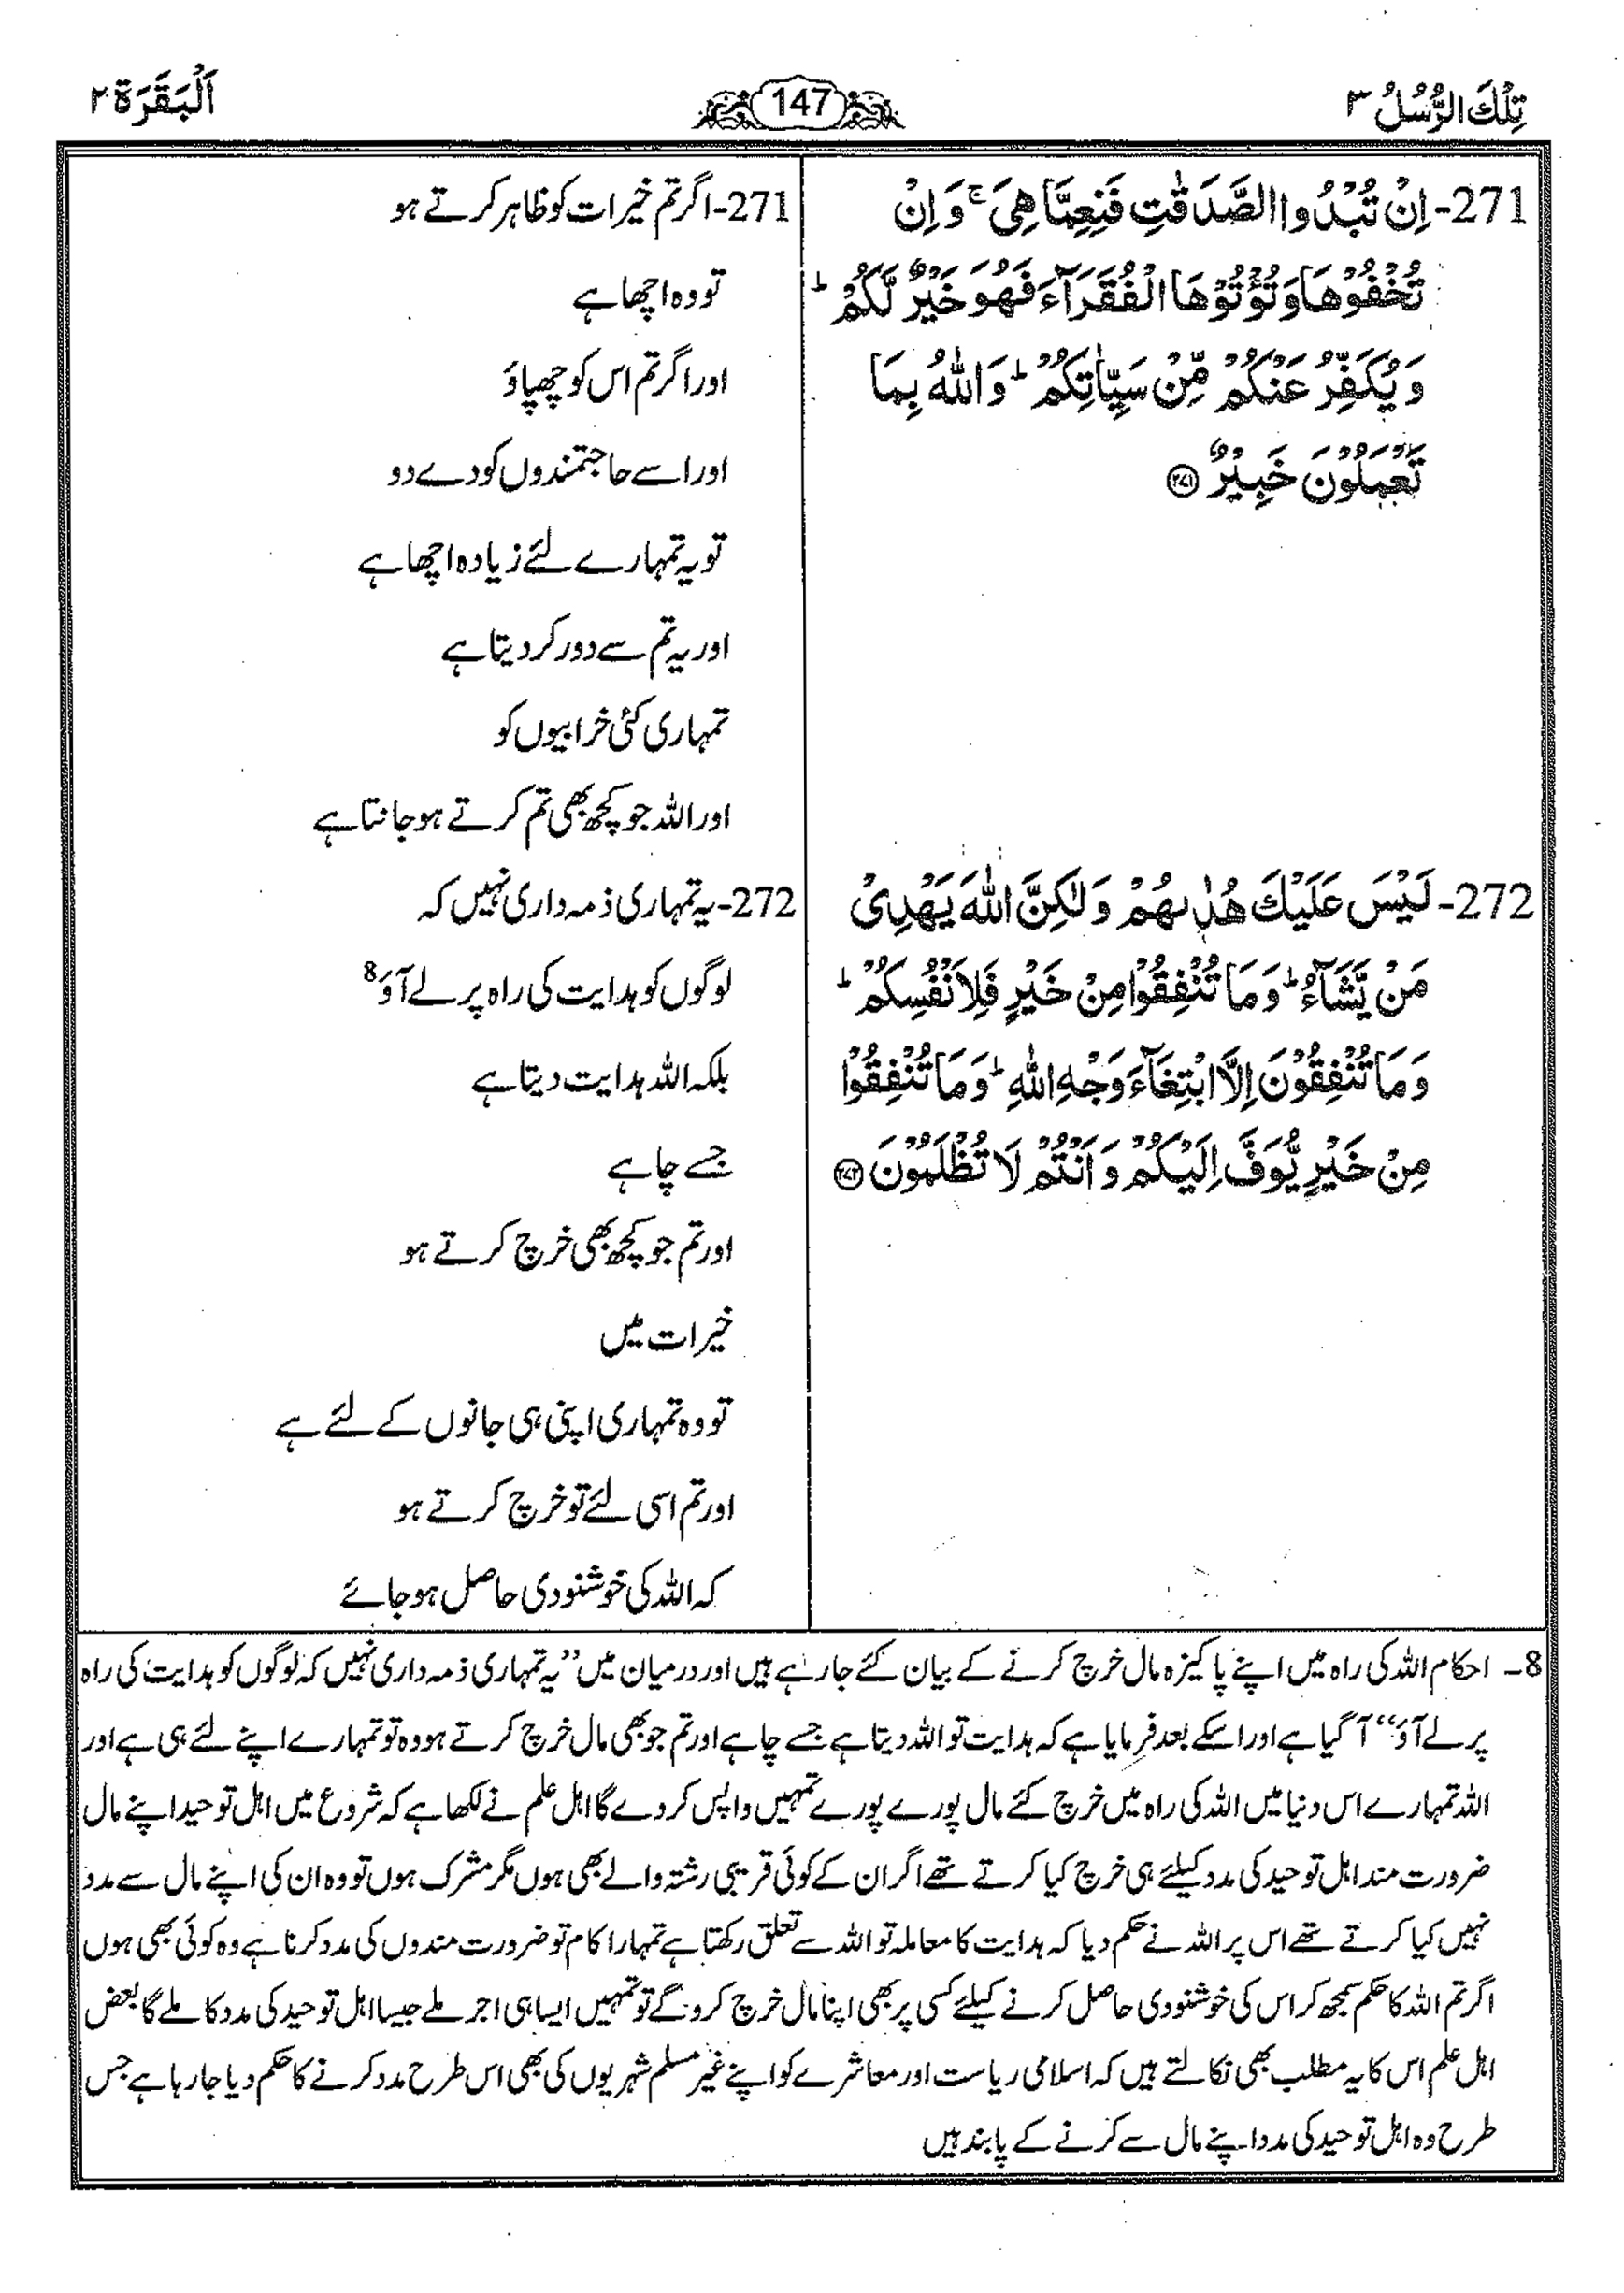 تِلْكَ الرُّسُلُ ۳
147
اَلْبَقَرَة ۲
271- اِنْ تُبْدُوا الصَّدَقٰتِ فَنِعِمَّا هِيَ ۚ وَ اِنْ
تُخْفُوْهَا وَ تُؤْتُوْهَا الْفُقَرَآءَ فَهُوَ خَيْرٌ لَّكُمْ ؕ
وَ يُكَفِّرُ عَنْكُمْ مِّنْ سَيِّاٰتِكُمْ ؕ وَ اللّٰهُ بِمَا
تَعْمَلُوْنَ خَبِيْرٌ ۝۲۷۱
271- اگر تم خیرات کو ظاہر کرتے ہو
تو وہ اچھا ہے
اور اگر تم اس کو چھپاؤ
اور اسے حاجتمندوں کو دے دو
تو یہ تمہارے لئے زیادہ اچھا ہے
اور یہ تم سے دور کر دیتا ہے
تمہاری کئی خرابیوں کو
اور اللہ جو کچھ بھی تم کرتے ہو جانتا ہے
272- لَيْسَ عَلَيْكَ هُدٰىهُمْ وَ لٰكِنَّ اللّٰهَ يَهْدِيْ
مَنْ يَّشَآءُ ؕ وَ مَا تُنْفِقُوْا مِنْ خَيْرٍ فَلِاَنْفُسِكُمْ ؕ
وَ مَا تُنْفِقُوْنَ اِلَّا ابْتِغَآءَ وَجْهِ اللّٰهِ ؕ وَ مَا تُنْفِقُوْا
مِنْ خَيْرٍ يُّوَفَّ اِلَيْكُمْ وَ اَنْتُمْ لَا تُظْلَمُوْنَ ۝۲۷۲
272- یہ تمہاری ذمہ داری نہیں کہ
لوگوں کو ہدایت کی راہ پر لے آؤ8
بلکہ اللہ ہدایت دیتا ہے
جسے چاہے
اور تم جو کچھ بھی خرچ کرتے ہو
خیرات میں
تو وہ تمہاری اپنی ہی جانوں کے لئے ہے
اور تم اسی لئے تو خرچ کرتے ہو
کہ اللہ کی خوشنودی حاصل ہو جائے
8- احکام اللہ کی راہ میں اپنے پاکیزہ مال خرچ کرنے کے بیان کئے جا رہے ہیں اور درمیان میں ’’یہ تمہاری ذمہ داری نہیں کہ لوگوں کو ہدایت کی راہ
پر لے آؤ‘‘ آ گیا ہے اور اسکے بعد فرمایا ہے کہ ہدایت تو اللہ دیتا ہے جسے چاہے اور تم جو بھی مال خرچ کرتے ہو وہ تو تمہارے اپنے لئے ہی ہے اور
اللہ تمہارے اس دنیا میں اللہ کی راہ میں خرچ کئے مال پورے پورے تمہیں واپس کر دے گا اہل علم نے لکھا ہے کہ شروع میں اہل توحید اپنے مال
ضرورت مند اہل توحید کی مدد کیلئے ہی خرچ کیا کرتے تھے اگر ان کے کوئی قریبی رشتہ والے بھی ہوں مگر مشرک ہوں تو وہ ان کی اپنے مال سے مدد
نہیں کیا کرتے تھے اس پر اللہ نے حکم دیا کہ ہدایت کا معاملہ تو اللہ سے تعلق رکھتا ہے تمہارا کام تو ضرورت مندوں کی مدد کرنا ہے وہ کوئی بھی ہوں
اگر تم اللہ کا حکم سمجھ کر اس کی خوشنودی حاصل کرنے کیلئے کسی پر بھی اپنا مال خرچ کرو گے تو تمہیں ایسا ہی اجر ملے جیسا اہل توحید کی مدد کا ملے گا بعض
اہل علم اس کا یہ مطلب بھی نکالتے ہیں کہ اسلامی ریاست اور معاشرے کو اپنے غیر مسلم شہریوں کی بھی اس طرح مدد کرنے کا حکم دیا جا رہا ہے جس
طرح وہ اہل توحید کی مدد اپنے مال سے کرنے کے پابند ہیں